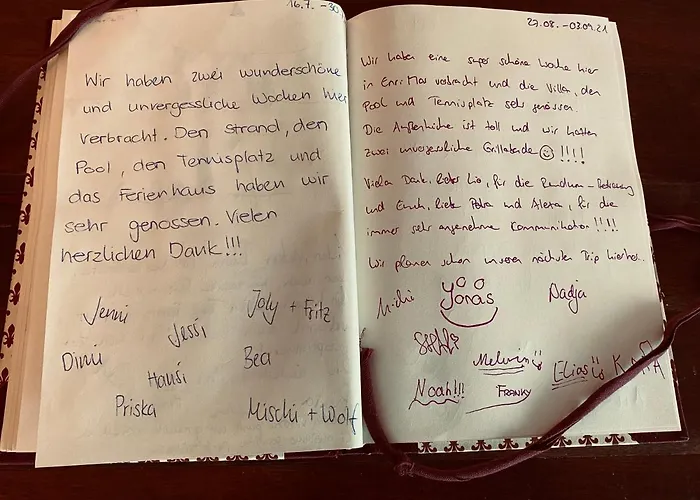 16.7. - 30
Wir haben zwei wunderschöne
und unvergessliche Wochen hier
verbracht. Den Strand, den
Pool, den Tennisplatz und
das Ferienhaus haben wir
sehr genossen. Vielen
herzlichen Dank!!!
Jenni
Joly + Fritz
Jessi
Dimi
Bea
Hansi
Priska
Mischi + Wolf
27.08. - 03.09.21
Wir haben eine super schöne Woche hier
in Enri Mar verbracht und die Villa, den
Pool und Tennisplatz sehr genossen.
Die Außenküche ist toll und wir hatten
zwei unvergessliche Grillabende !!!!
Vielen Dank, lieber Lio, für die Rundum-Betreuung
und Euch, liebe Petra und Alexa, für die
immer sehr angenehme Kommunikation!!!!
Wir planen schon unseren nächsten Trip hierher..
Michi
Jonas
Nadja
Melvin
Elias
Noah!!!
FRANKY